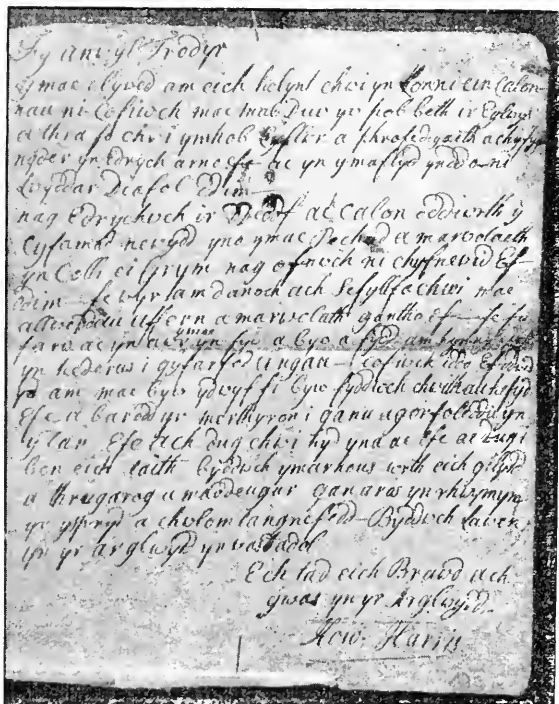 Fy anwyl Frodyr
y mae clywed am eich helynt chwi yn Lonni ein Calon-
nau ni Cofiwch mae mab Duw yw pob beth ir Eglwys
a thra fo chwi ymhob a phrofedigaeth a chyfyng
nyder yn Edrych arno ef ac yn ymaflyd ynddo ni
Lwyddar Diafol ddim
nag Edrychwch ir ac calon oddiwrth y
Cyfamod newydd yno y mae Pechod a marwolaeth
yn Colli ei grym nag ofnwch ni chyfnewid Ef
ddim fe wyr am danoch ach Sefyllfa chwi mae
uffern a marwolaeth gantho ef fe fu
farw ac yn awr y mae yn fyw a byw a fydd am
yn i gyfarfod ungau Cofiwch
am mae byw ydwyf fi byw fyddwch chwithau hefyd
Efe a barodd yr merthyron i ganu ugorfoleddu yn
y tan Efe ach dug chwi hyd yna ac Efe ac dwg i
ben eich taith byddwch ymarhous wrth eich gilydd
a thrugarog a maddeugar gan aros yn rhwymyn
yr yspryd a cholom tangnefedd Byddwch lawen
yn yr arglwydd yn wastadol
Eich tad eich Brawd ach
gwas yn yr Arglwydd
How: Harris